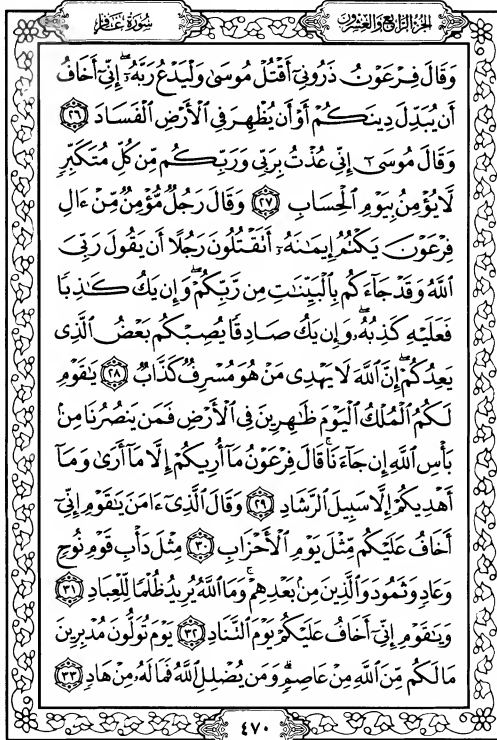 الجزء الرابع والعشرون
سورة غافر
وَقَالَ فِرْعَوْنُ ذَرُونِىٓ أَقْتُلْ مُوسَىٰ وَلْيَدْعُ رَبَّهُۥٓ ۖ إِنِّىٓ أَخَافُ
أَن يُبَدِّلَ دِينَكُمْ أَوْ أَن يُظْهِرَ فِى ٱلْأَرْضِ ٱلْفَسَادَ ٢٦
وَقَالَ مُوسَىٰٓ إِنِّى عُذْتُ بِرَبِّى وَرَبِّكُم مِّن كُلِّ مُتَكَبِّرٍ
لَّا يُؤْمِنُ بِيَوْمِ ٱلْحِسَابِ ٢٧ وَقَالَ رَجُلٌ مُّؤْمِنٌ مِّنْ ءَالِ
فِرْعَوْنَ يَكْتُمُ إِيمَٰنَهُۥٓ أَتَقْتُلُونَ رَجُلًا أَن يَقُولَ رَبِّىَ
ٱللَّهُ وَقَدْ جَآءَكُم بِٱلْبَيِّنَٰتِ مِن رَّبِّكُمْ ۖ وَإِن يَكُ كَٰذِبًا
فَعَلَيْهِ كَذِبُهُۥ ۖ وَإِن يَكُ صَادِقًا يُصِبْكُم بَعْضُ ٱلَّذِى
يَعِدُكُمْ ۖ إِنَّ ٱللَّهَ لَا يَهْدِى مَنْ هُوَ مُسْرِفٌ كَذَّابٌ ٢٨ يَٰقَوْمِ
لَكُمُ ٱلْمُلْكُ ٱلْيَوْمَ ظَٰهِرِينَ فِى ٱلْأَرْضِ فَمَن يَنصُرُنَا مِنۢ
بَأْسِ ٱللَّهِ إِن جَآءَنَا ۚ قَالَ فِرْعَوْنُ مَآ أُرِيكُمْ إِلَّا مَآ أَرَىٰ وَمَآ
أَهْدِيكُمْ إِلَّا سَبِيلَ ٱلرَّشَادِ ٢٩ وَقَالَ ٱلَّذِىٓ ءَامَنَ يَٰقَوْمِ إِنِّىٓ
أَخَافُ عَلَيْكُم مِّثْلَ يَوْمِ ٱلْأَحْزَابِ ٣٠ مِثْلَ دَأْبِ قَوْمِ نُوحٍ
وَعَادٍ وَثَمُودَ وَٱلَّذِينَ مِنۢ بَعْدِهِمْ ۚ وَمَا ٱللَّهُ يُرِيدُ ظُلْمًا لِّلْعِبَادِ ٣١
وَيَٰقَوْمِ إِنِّىٓ أَخَافُ عَلَيْكُمْ يَوْمَ ٱلتَّنَادِ ٣٢ يَوْمَ تُوَلُّونَ مُدْبِرِينَ
مَا لَكُم مِّنَ ٱللَّهِ مِنْ عَاصِمٍ ۗ وَمَن يُضْلِلِ ٱللَّهُ فَمَا لَهُۥ مِنْ هَادٍ ٣٣
٤٧٠